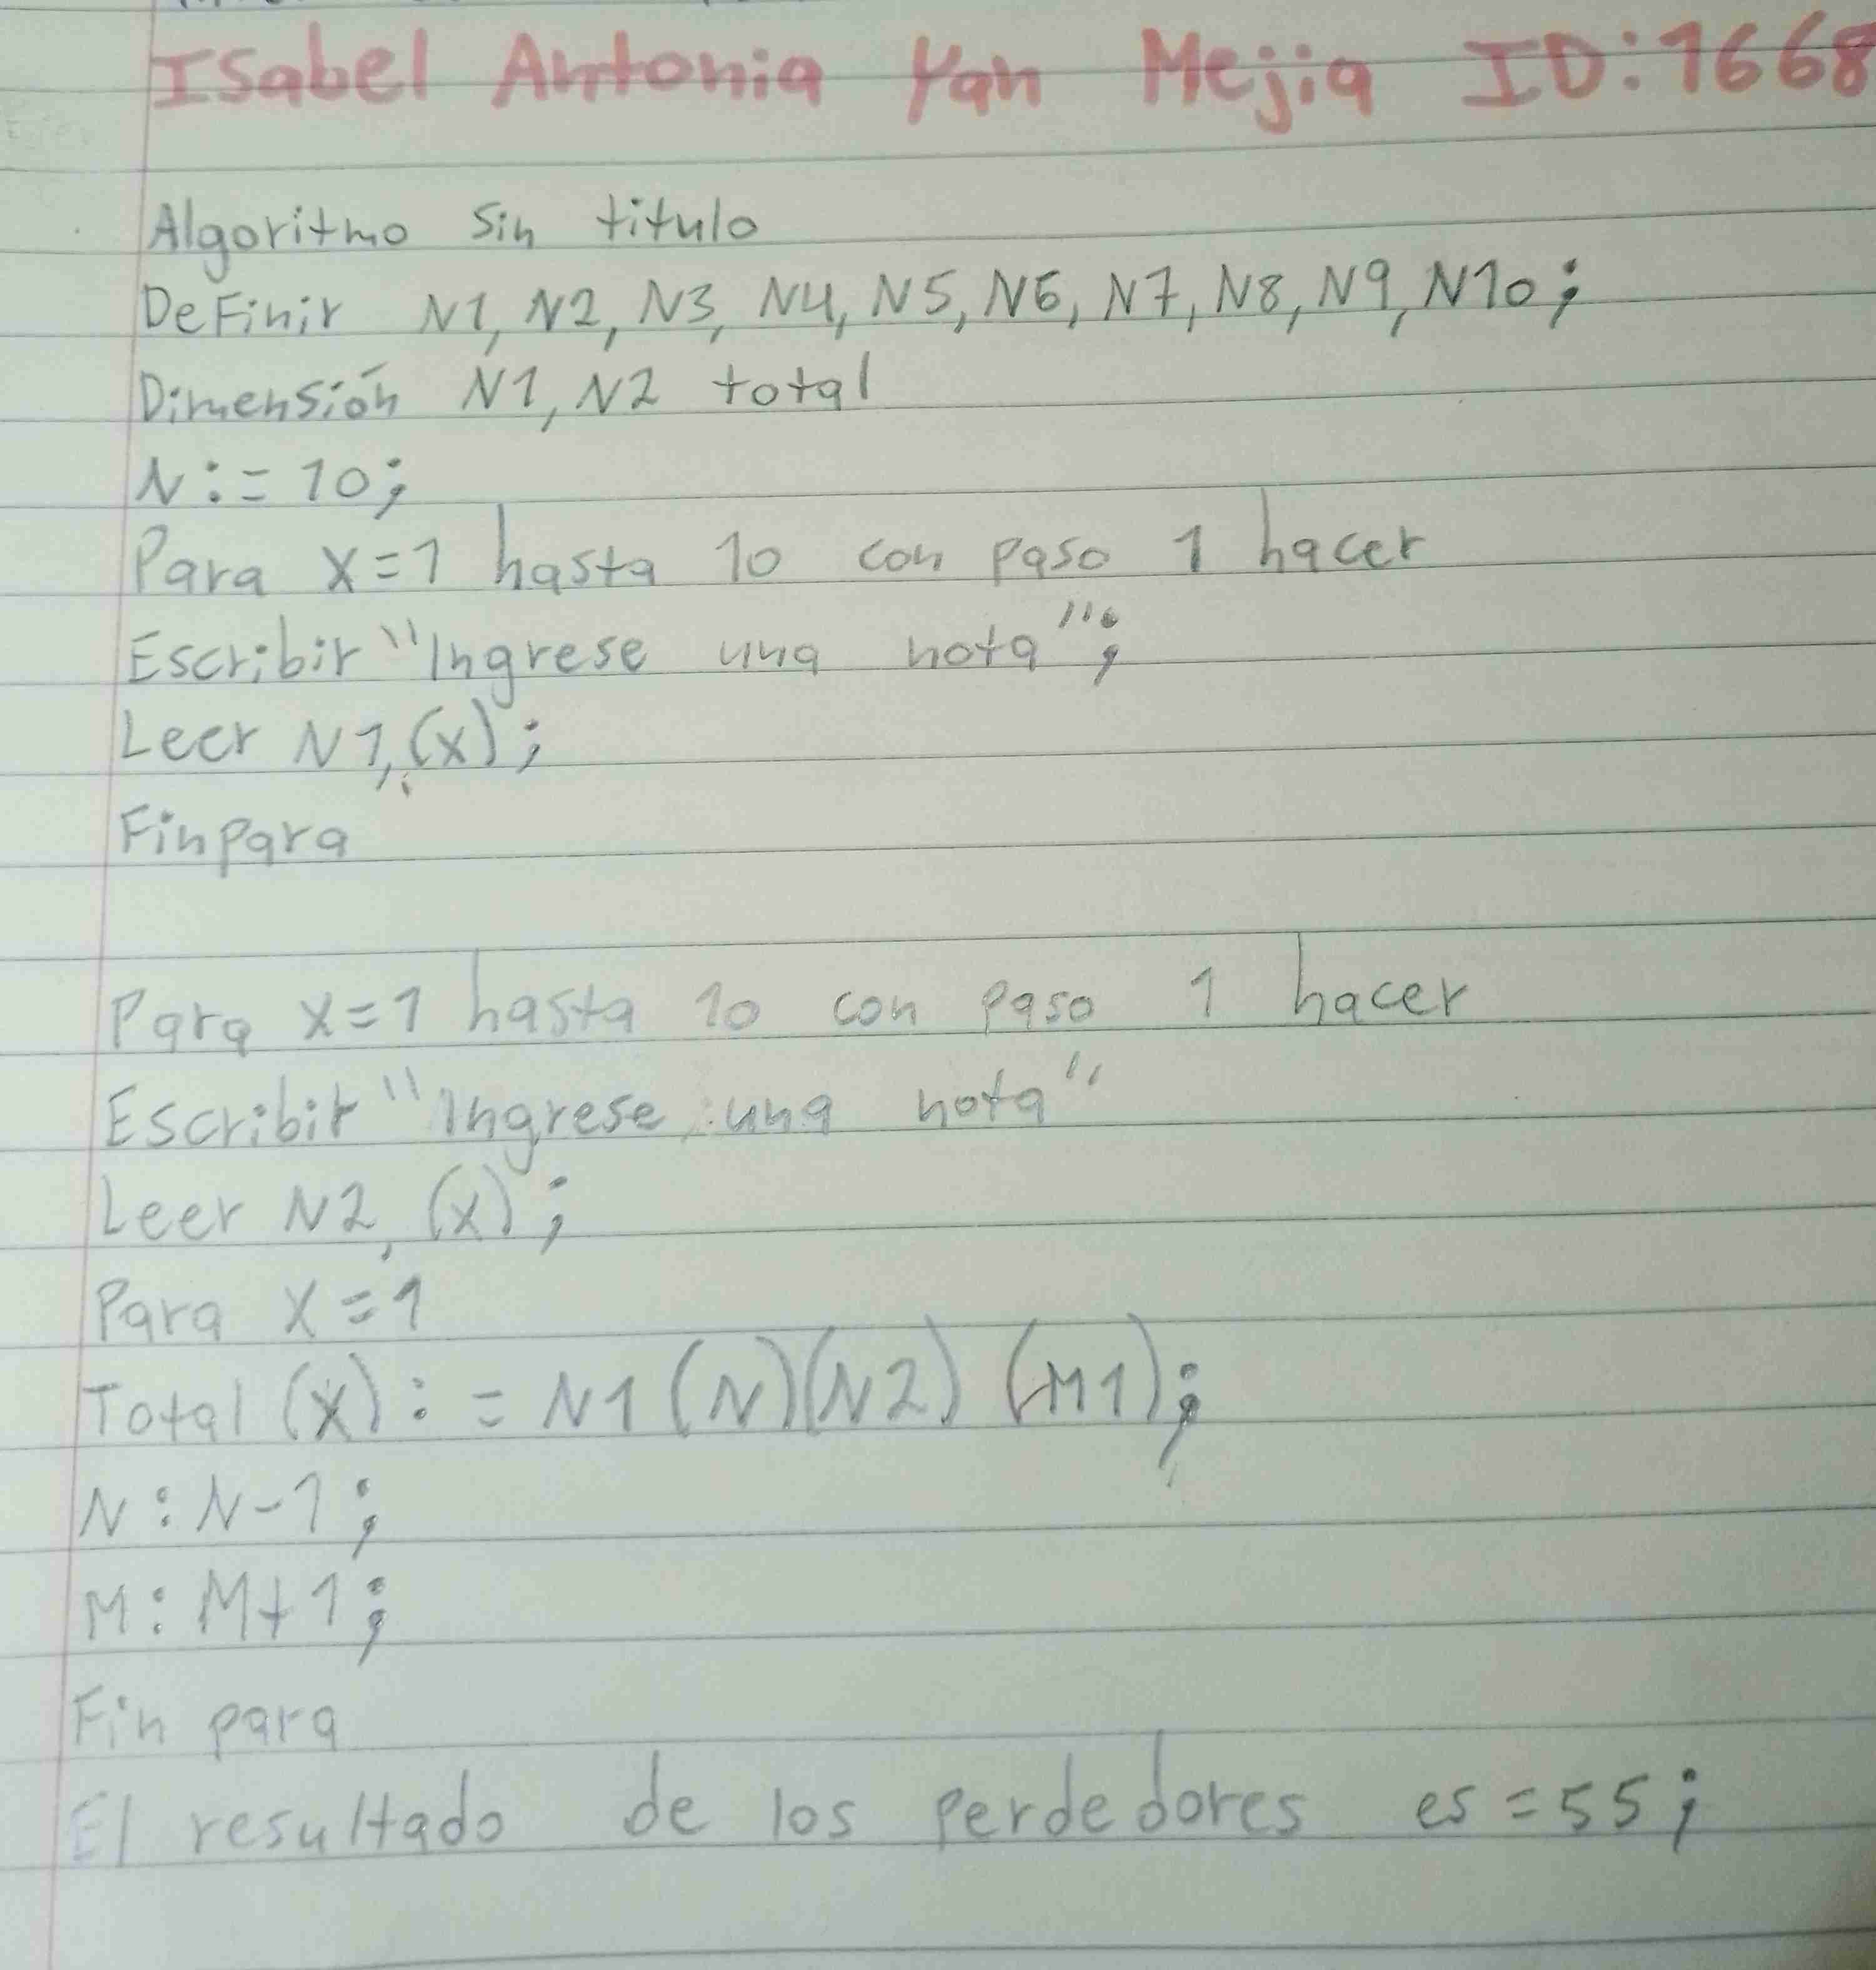 Isabel Antonia Yan Mejia ID:1668
Algoritmo Sin titulo
Definir N1, N2, N3, N4, N5, N6, N7, N8, N9, N10;
Dimensión N1, N2 total
N := 10;
Para x=1 hasta 10 con paso 1 hacer
Escribir "Ingrese una nota";
Leer N1,(x);
Finpara
Para x=1 hasta 10 con paso 1 hacer
Escribir "Ingrese una nota"
Leer N2, (x);
Para x=1
Total (x) := N1 (N)(N2) (M1);
N : N-1;
M : M+1;
Fin para
El resultado de los perdedores es =55;